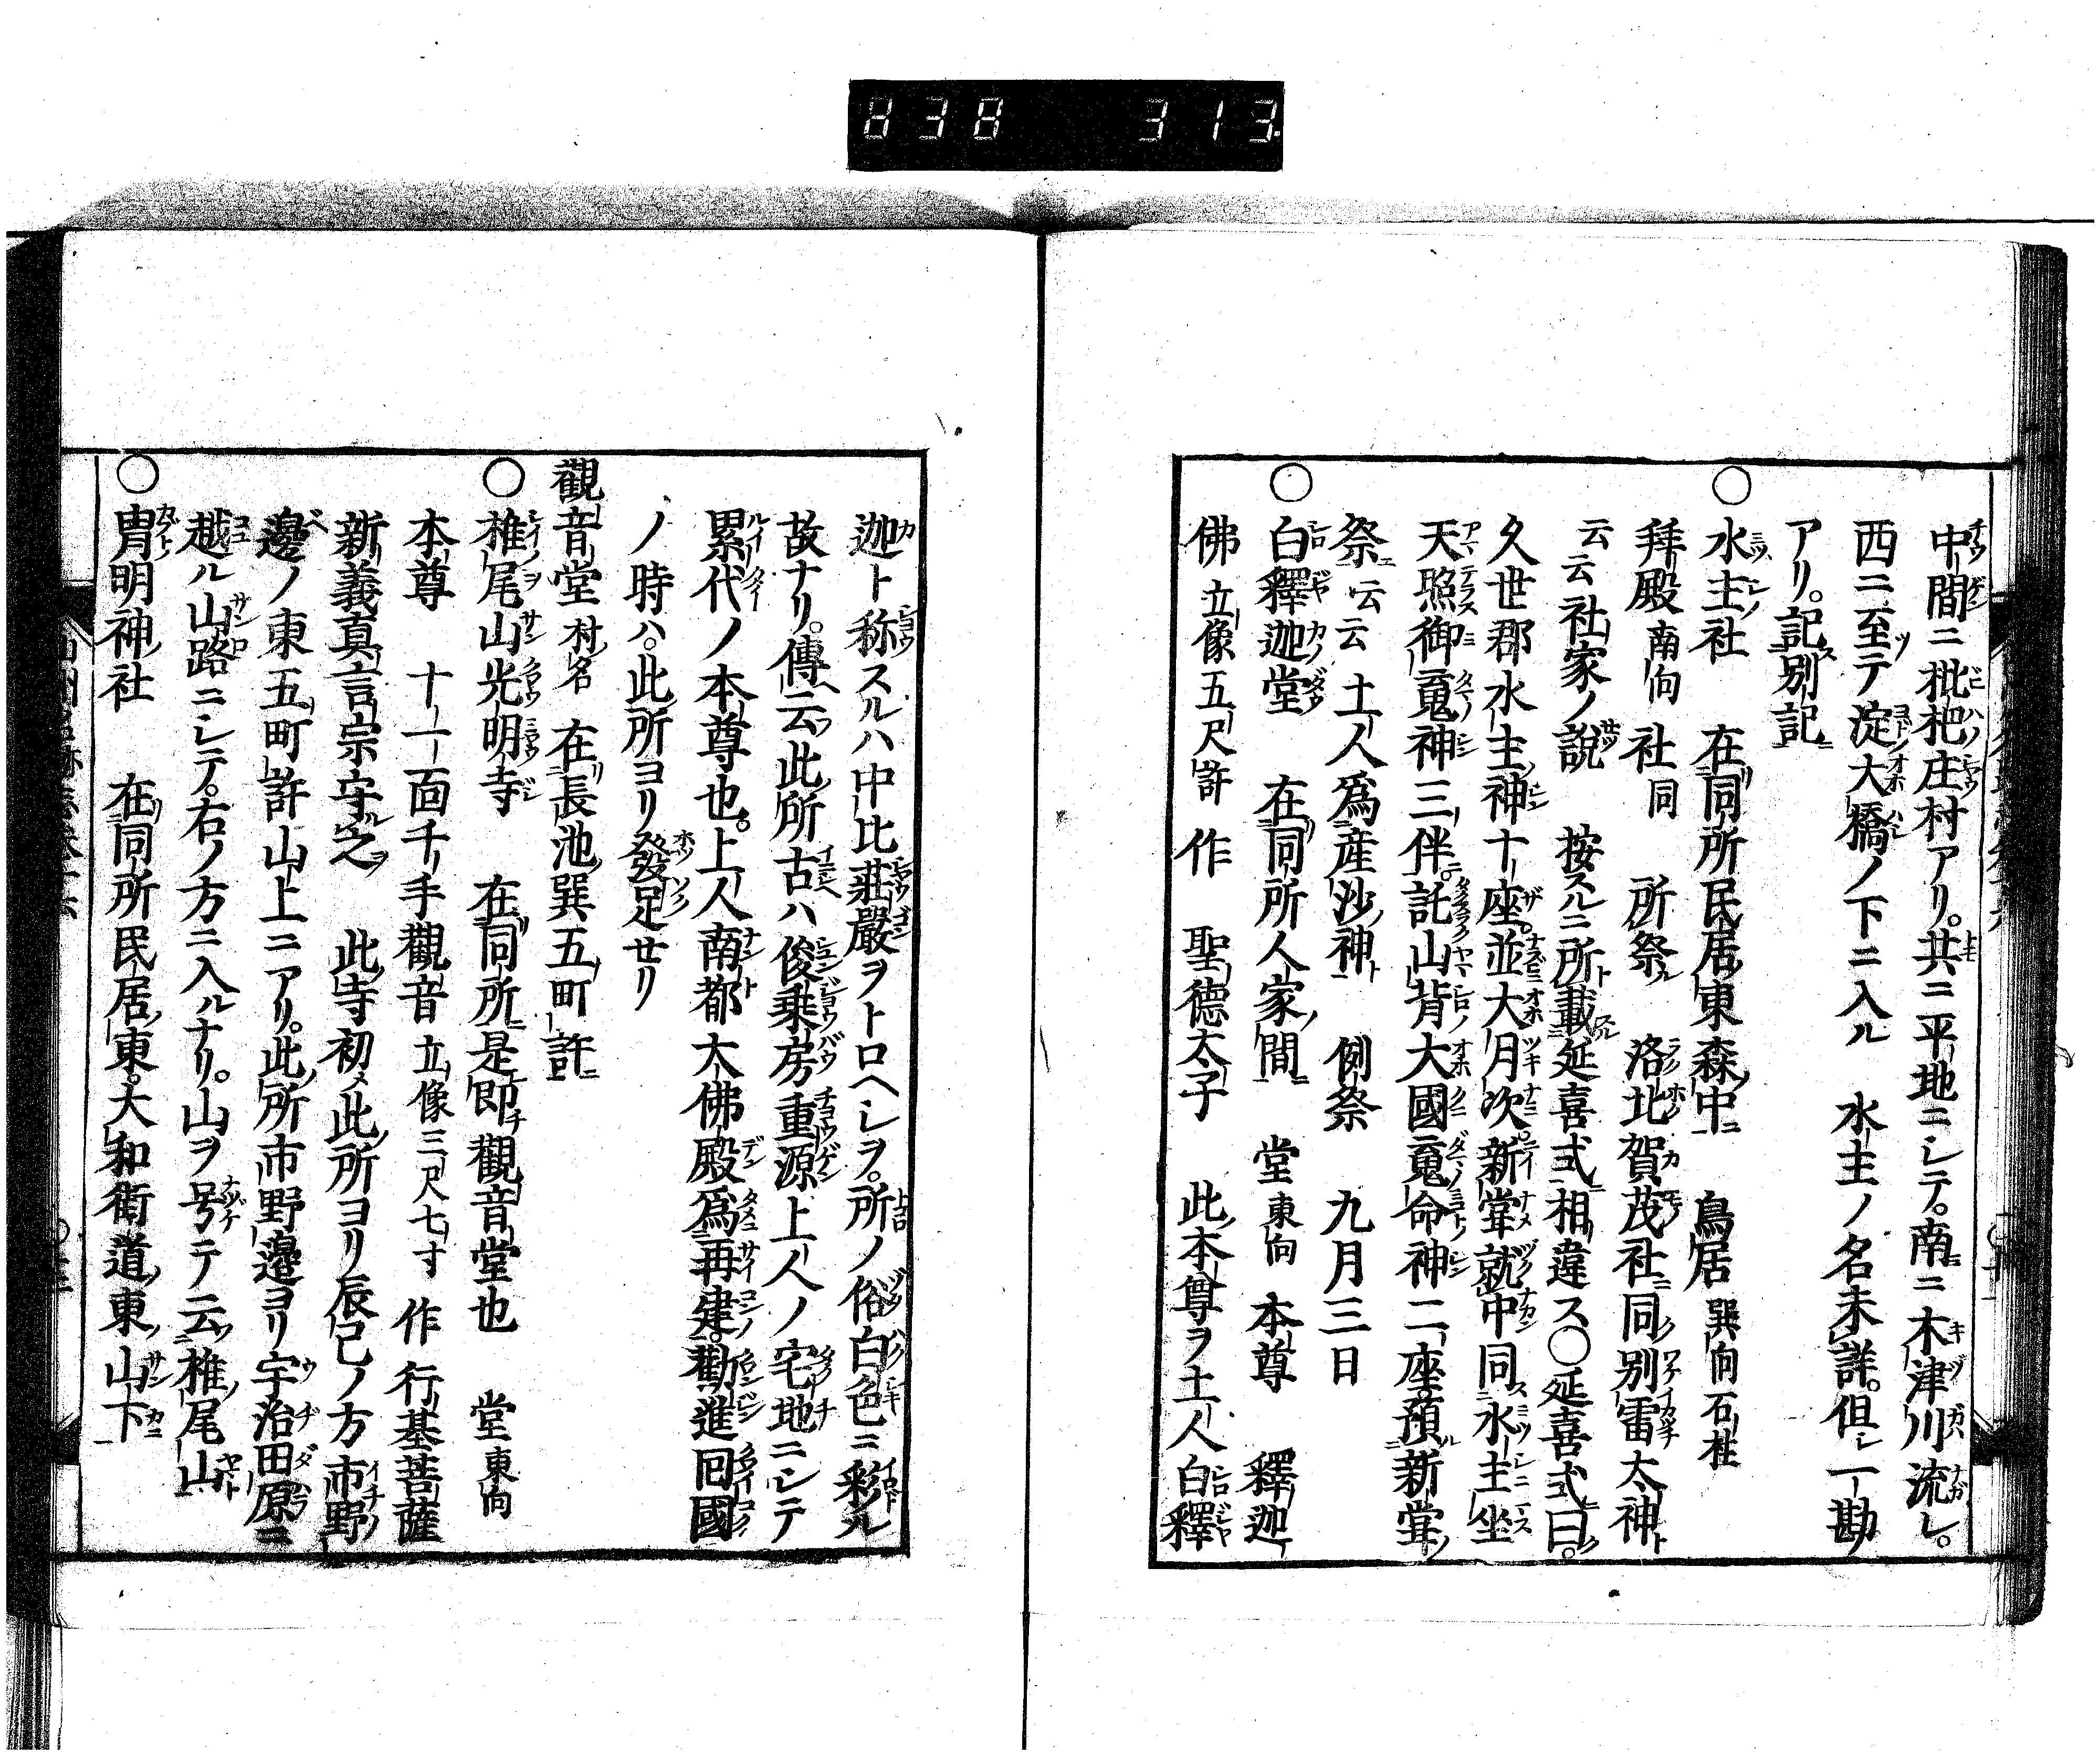 838 313.
中間ニ枇杷庄村アリ。共ニ平地ニシテ。南ニ木津川流レ。
西ニ至テ淀大橋ノ下ニ入ル 水主ノ名未詳。但シ一勘
アリ。記別記
○水主社 在同所民居東森中 鳥居 巽向石柱
拜殿 南向 社 同 所祭 洛北賀茂社ニ同別雷太神ト
云云社家ノ説 按スルニ所載延喜式相違ス○延喜式ニ曰。
久世郡水主神十座。並大月次新甞就中同水主坐
天照御䰟神三伴。託山背大國䰟命神二座預新甞ノ
祭云云土人爲産沙神ト 例祭 九月三日
○白釋迦堂 在同所人家間 堂 東向 本尊 釋迦
佛 立像五尺許 作 聖德太子 此本尊ヲ土人白釋
迦ト称スルハ中比莊嚴ヲトロヘシヲ。所ノ俗白色ニ彩ル
故ナリ。傳云此所古ハ俊乗房重源上人ノ宅地ニシテ
累代ノ本尊也。上人南都大佛殿爲再建勸進回國
ノ時ハ。此所ヨリ發足セリ
觀音堂 村名 在長池巽五町許
○椎尾山光明寺 在同所是即觀音堂也 堂 東向
本尊 十一面千手觀音 立像三尺七寸 作 行基菩薩
新義真言宗守之 此寺初メ此所ヨリ辰巳ノ方市野
邊ノ東五町許山上ニアリ。此所市野邉ヨリ宇治田原ニ
越ル山路ニシテ。右ノ方ニ入ルナリ。山ヲ号テ云椎尾山
○冑明神社 在同所民居東。大和街道東山下